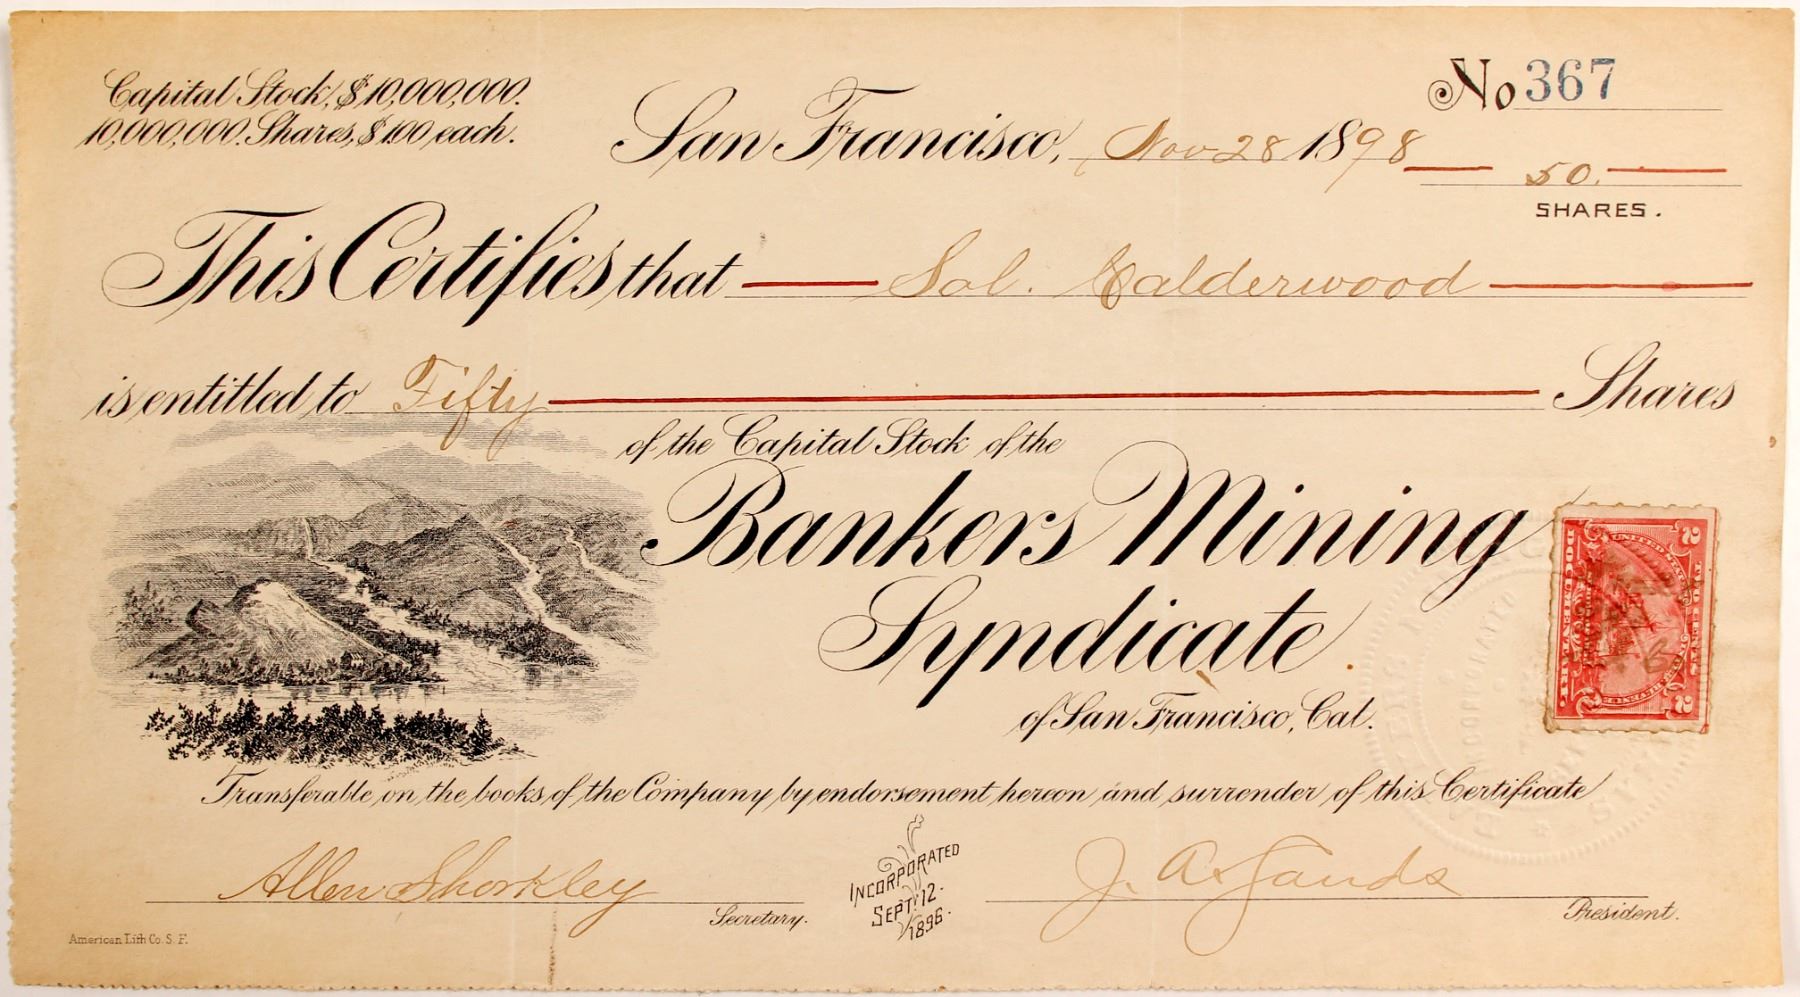 Capital Stock, $10,000,000.
10,000,000. Shares, $1.00 each.
No 367
San Francisco, Nov 28 1898
50.
SHARES.
This Certifies that Sol. Calderwood
is entitled to Fifty Shares
of the Capital Stock of the
Bankers Mining
Syndicate.
of San Francisco, Cal.
2 UNITED STATES 2
DOCUMENTARY
TWO CENTS
Transferable on the books of the Company by endorsement hereon and surrender of this Certificate
Allen Shorkley
Secretary.
INCORPORATED
SEPT. 12.
1896.
J. A. Sands
President.
American Lith Co. S. F.